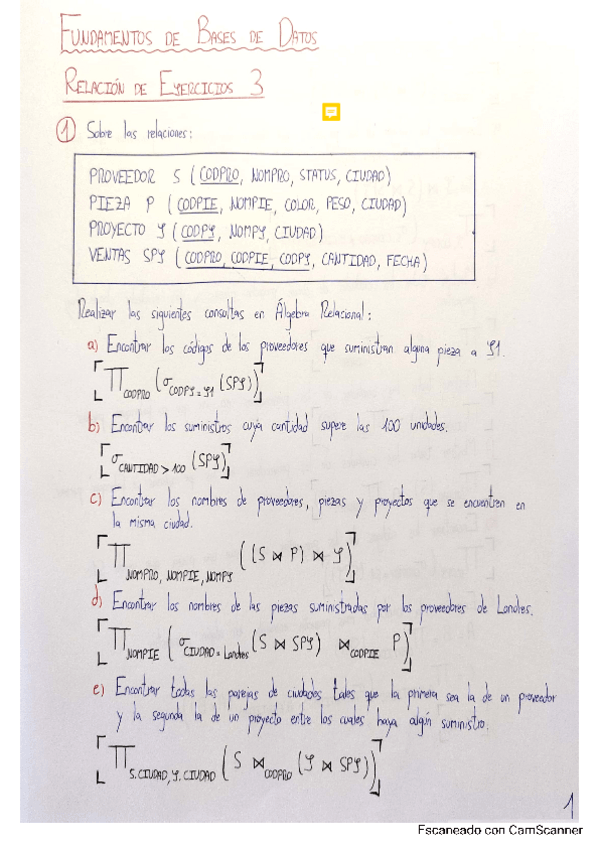 FUNDAMENTOS DE BASES DE DATOS
RELACIÓN DE EJERCICIOS 3
① Sobre las relaciones:
PROVEEDOR S (CODPRO, NOMPRO, STATUS, CIUDAD)
PIEZA P (CODPIE, NOMPIE, COLOR, PESO, CIUDAD)
PROYECTO J (CODPJ, NOMPJ, CIUDAD)
VENTAS SPJ (CODPRO, CODPIE, CODPJ, CANTIDAD, FECHA)
Realizar las siguientes consultas en Álgebra Relacional:
a) Encontrar los códigos de los proveedores que suministran alguna pieza a J1.
∏CODPRO (σCODPJ = J1 (SPJ))
b) Encontrar los suministros cuya cantidad supere las 100 unidades.
σCANTIDAD > 100 (SPJ)
c) Encontrar los nombres de proveedores, piezas y proyectos que se encuentren en
la misma ciudad.
∏NOMPRO, NOMPIE, NOMPJ ((S ⋈ P) ⋈ J)
d) Encontrar los nombres de las piezas suministradas por los proveedores de Londres.
∏NOMPIE (σCIUDAD = Londres (S ⋈ SPJ) ⋈CODPIE P)
e) Encontrar todas las parejas de ciudades tales que la primera sea la de un proveedor
y la segunda la de un proyecto entre los cuales haya algún suministro.
∏S.CIUDAD, J.CIUDAD (S ⋈CODPRO (J ⋈ SPJ))
1
Escaneado con CamScanner